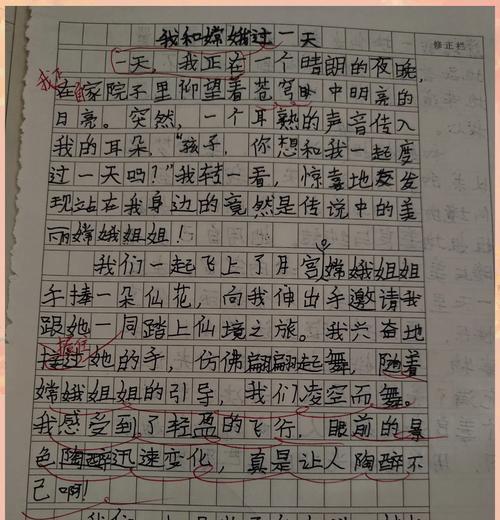 我和嫦娥过一天
修正栏
一天，我正在一个晴朗的夜晚，
在自家院子里仰望着苍穹中明亮的
月亮。突然，一个耳熟的声音传入
我的耳朵，“孩子，你想和我一起度
过一天吗？”我转一看，惊喜地发
现站在我身边的竟然是传说中的美
丽嫦娥姐姐！
我们一起飞上了月宫，嫦娥姐姐
手捧一朵仙花，向我伸出手邀请我
跟她一同踏上仙境之旅。我兴奋地
握住
接过她的手，仿佛翩翩起舞，随着
嫦娥姐姐的引导，我们凌空而舞。
我感受到了轻盈的飞行，眼前的景
色陶醉迅速变化，真是让人陶醉不
己啊！